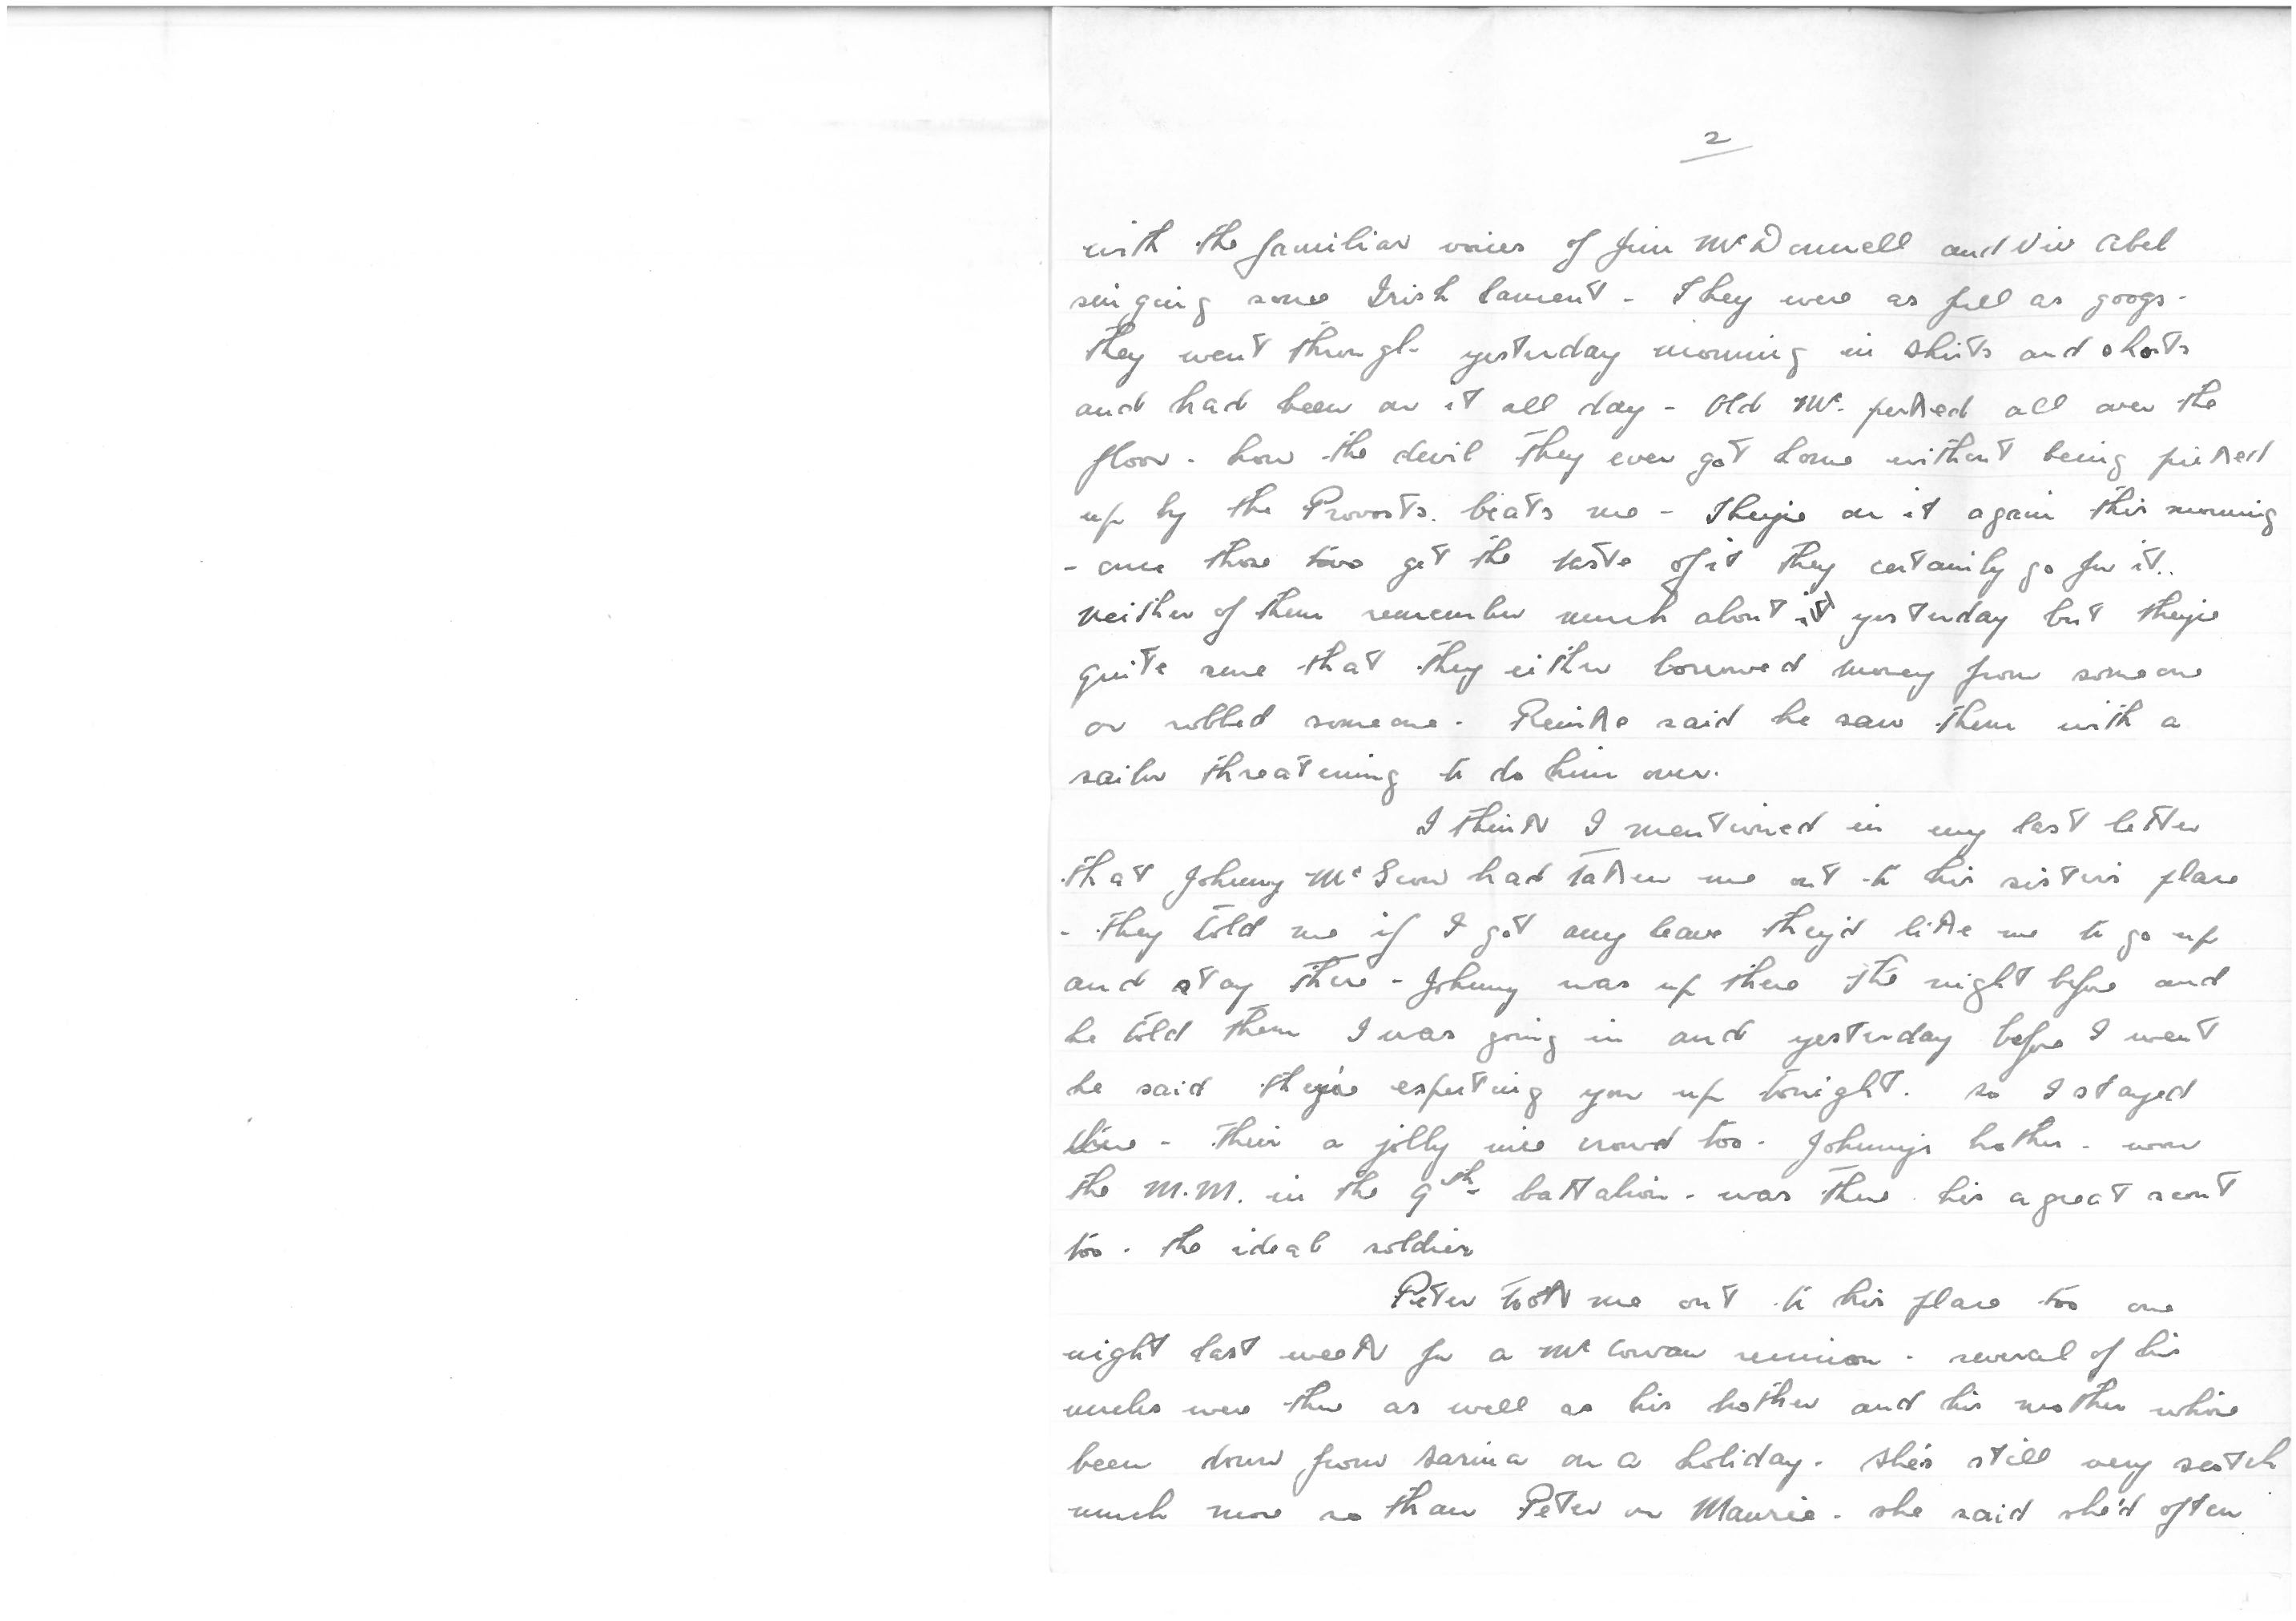 2
with the familiar voices of Jim McDonnell and Viv Abel
singing some Irish lament - They were as full as googs -
they went through yesterday morning in shirts and shorts
and had been on it all day - Old Mc. perked all over the
floor - how the devil they ever got home without being picked
up by the Provosts. beats me - They're on it again this morning
- once those two get the taste of it they certainly go for it..
neither of them remember much about it yesterday but they're
quite sure that they either borrowed money from someone
or robbed someone - said he saw them with a
sailor threatening to do him over.
I think I mentioned in my last letter
that Johnny had taken me out to his sister's place
- they told me if I got any leave they'd like me to go up
and stay there - Johnny was up there the night before and
he told them I was going in and yesterday before I went
he said they're expecting you up tonight. so I stayed
there - their a jolly nice crowd too - Johnny's brother - won
the M.M. in the 9th battalion - was there. his a great scout
too - the ideal soldier
Peter took me out to his place too one
night last week for a McCowan reunion - several of his
uncles were there as well as his brother and his mother who's
been down from Sarina on a holiday - she's still very scotch
much more so than Peter or Maurie - she said she'd often